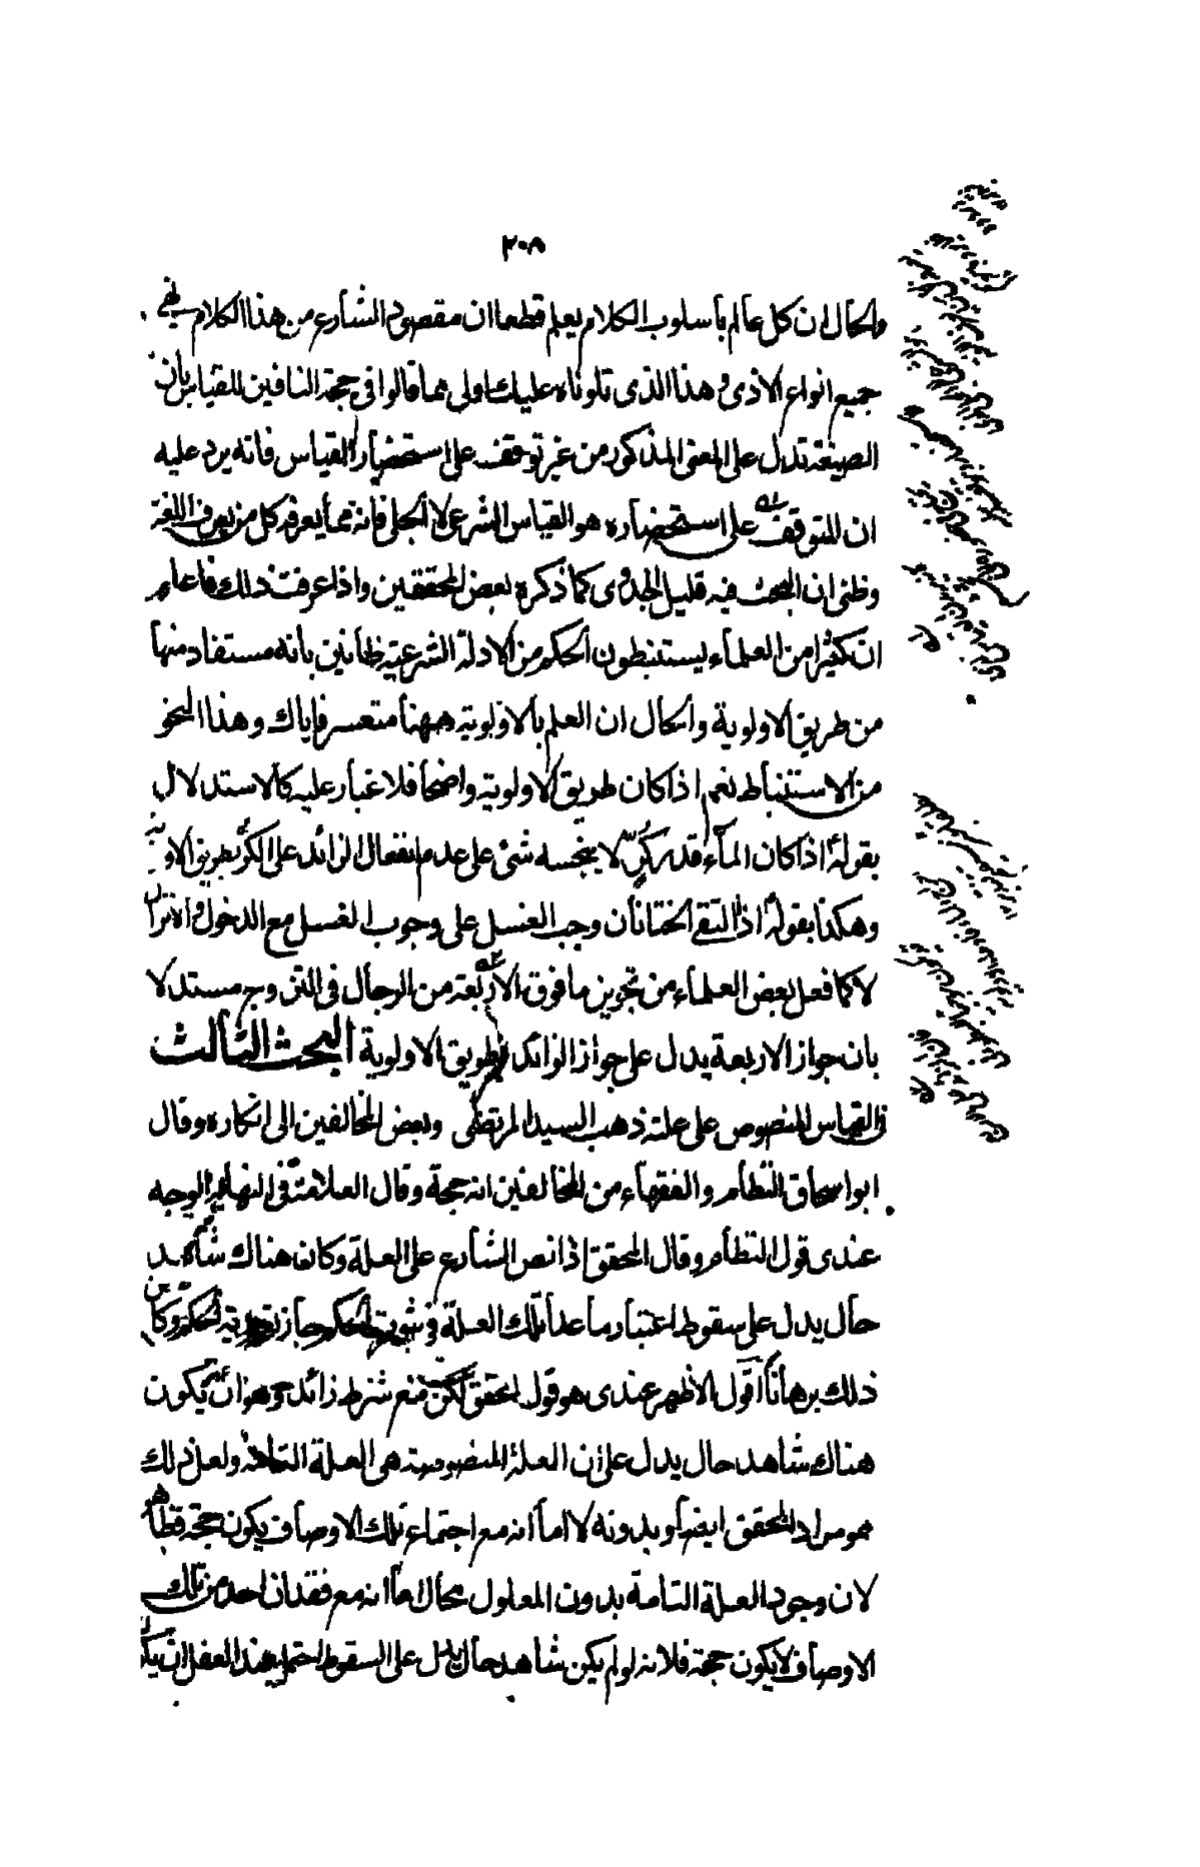 ٢٠٨
والحال ان كل عالم بأسلوب الكلام يعلم قطعا ان مقصود الشارع من هذا الكلام نفي
جميع انواع الاذى وهذا الذى تلوناه عليك اولى مما قالوا فى حجة النافين للقياس بان
الصيغة تدل على المعنى المذكور من غير توقف على استحضار القياس فانه يرد عليه
ان المتوقف على استحضاره هو القياس الشرعى لا الجلى فانه مما يعرفه كل من يعرف اللغة
وظنى ان البحث فيه قليل الجدوى كما ذكره بعض المحققين واذا عرفت ذلك فاعلم
ان كثيرا من العلماء يستنبطون الحكم من الادلة الشرعية ظانين بانه مستفاد منها
من طريق الاولوية والحال ان العلم بالاولوية ههنا متعسر فاياك وهذا النحو
من الاستنباط نعم اذا كان طريق الاولوية واضحا فلا غبار عليه كالاستدلال
بقوله اذا كان الماء قدر كر لا ينجسه شئ على عدم انفعال الزائد على الكر بطريق الاولوية
وهكذا بقوله اذا التقى الختانان وجب الغسل على وجوب الغسل مع الدخول والانزال
لا كما فعل بعض العلماء من تجويز ما فوق الاربعة من الرجال فى التزوج مستدلا
بان جواز الاربعة يدل على جواز الزائد بطريق الاولوية البحث الثالث
فى القياس المنصوص على علته ذهب السيد المرتضى وبعض المخالفين الى انكاره وقال
ابو اسحاق النظام والفقهاء من المخالفين انه حجة وقال العلامة فى النهاية الوجه
عندى قول النظام وقال المحقق اذا نص الشارع على العلة وكان هناك شاهد
حال يدل على سقوط اعتبار ما عدا تلك العلة فى ثبوت الحكم جاز تعدية الحكم وكان
ذلك برهانا اقول الاظهر عندى هو قول المحقق لكن مع شرط زائد وهو ان يكون
هناك شاهد حال يدل على ان العلة المنصوصة هى العلة التامة ولعل ذلك
هو مراد المحقق ايضا وبدونه لا اما انه مع اجتماع تلك الاوصاف يكون حجة فظاهر
لان وجود العلة التامة بدون المعلول محال اما انه مع فقدان احد من تلك
الاوصاف لا يكون حجة فلانه لو لم يكن شاهد حال يدل على السقوط احتمل عند العقل ان يكون